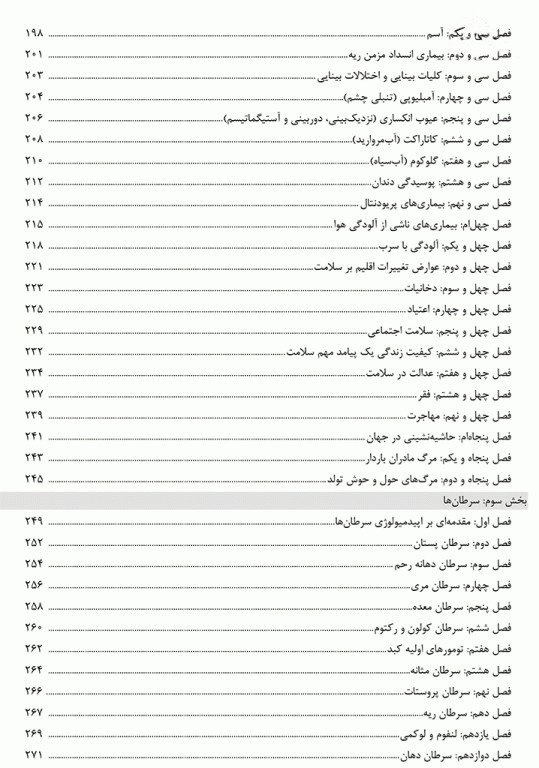 فصل سی و یکم: آسم ۱۹۸
فصل سی و دوم: بیماری انسداد مزمن ریه ۲۰۱
فصل سی و سوم: کلیات بینایی و اختلالات بینایی ۲۰۳
فصل سی و چهارم: آمبلیوپی (تنبلی چشم) ۲۰۴
فصل سی و پنجم: عیوب انکساری (نزدیک‌بینی، دوربینی و آستیگماتیسم) ۲۰۶
فصل سی و ششم: کاتاراکت (آب‌مروارید) ۲۰۸
فصل سی و هفتم: گلوکوم (آب‌سیاه) ۲۱۰
فصل سی و هشتم: پوسیدگی دندان ۲۱۲
فصل سی و نهم: بیماری‌های پریودنتال ۲۱۴
فصل چهل‌ام: بیماری‌های ناشی از آلودگی هوا ۲۱۵
فصل چهل و یکم: آلودگی با سرب ۲۱۸
فصل چهل و دوم: عوارض تغییرات اقلیم بر سلامت ۲۲۱
فصل چهل و سوم: دخانیات ۲۲۳
فصل چهل و چهارم: اعتیاد ۲۲۵
فصل چهل و پنجم: سلامت اجتماعی ۲۲۹
فصل چهل و ششم: کیفیت زندگی یک پیامد مهم سلامت ۲۳۲
فصل چهل و هفتم: عدالت در سلامت ۲۳۴
فصل چهل و هشتم: فقر ۲۳۷
فصل چهل و نهم: مهاجرت ۲۳۹
فصل پنجاه‌ام: حاشیه‌نشینی در جهان ۲۴۱
فصل پنجاه و یکم: مرگ مادران باردار ۲۴۳
فصل پنجاه و دوم: مرگ‌های حول و حوش تولد ۲۴۵
بخش سوم: سرطان‌ها
فصل اول: مقدمه‌ای بر اپیدمیولوژی سرطان‌ها ۲۴۹
فصل دوم: سرطان پستان ۲۵۲
فصل سوم: سرطان دهانه رحم ۲۵۴
فصل چهارم: سرطان مری ۲۵۶
فصل پنجم: سرطان معده ۲۵۸
فصل ششم: سرطان کولون و رکتوم ۲۶۰
فصل هفتم: تومورهای اولیه کبد ۲۶۲
فصل هشتم: سرطان مثانه ۲۶۴
فصل نهم: سرطان پروستات ۲۶۶
فصل دهم: سرطان ریه ۲۶۷
فصل یازدهم: لنفوم و لوکمی ۲۶۹
فصل دوازدهم: سرطان دهان ۲۷۱